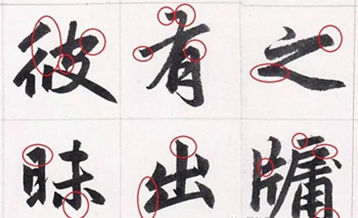 彼有之
昧出牖